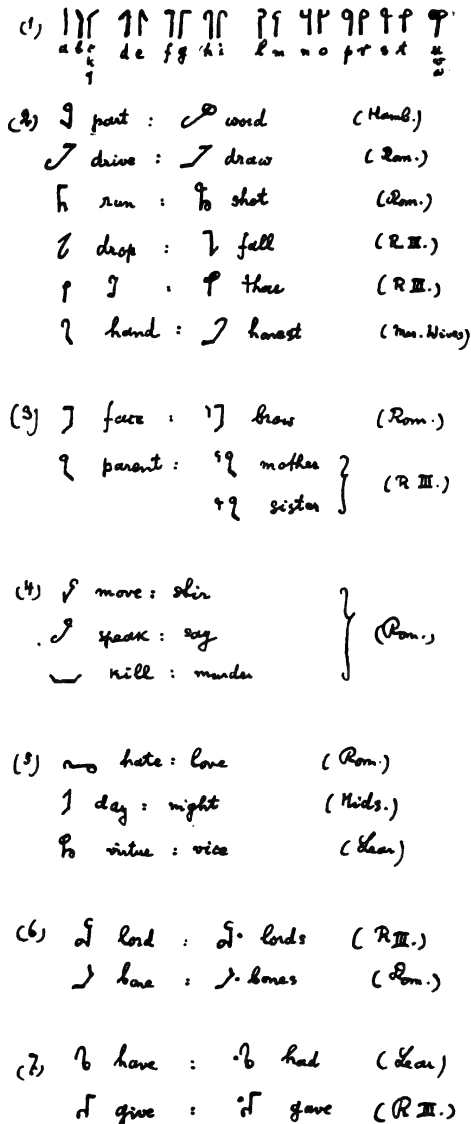 (1) a b c d e f g h i l m n o p r s t u
k v
q w
(2) part : word (Hamb.)
drive : draw (Rom.)
run : shot (Rom.)
drop : fall (R III.)
I : thou (R III.)
hand : honest (Mer. Wives)
(3) face : brow (Rom.)
parent : mother
sister (R III.)
(4) move : stir
speak : say (Rom.)
kill : murder
(5) hate : love (Rom.)
day : night (Mids.)
virtue : vice (Lear)
(6) lord : lords (R III.)
bone : bones (Rom.)
(7) have : had (Lear)
give : gave (R III.)